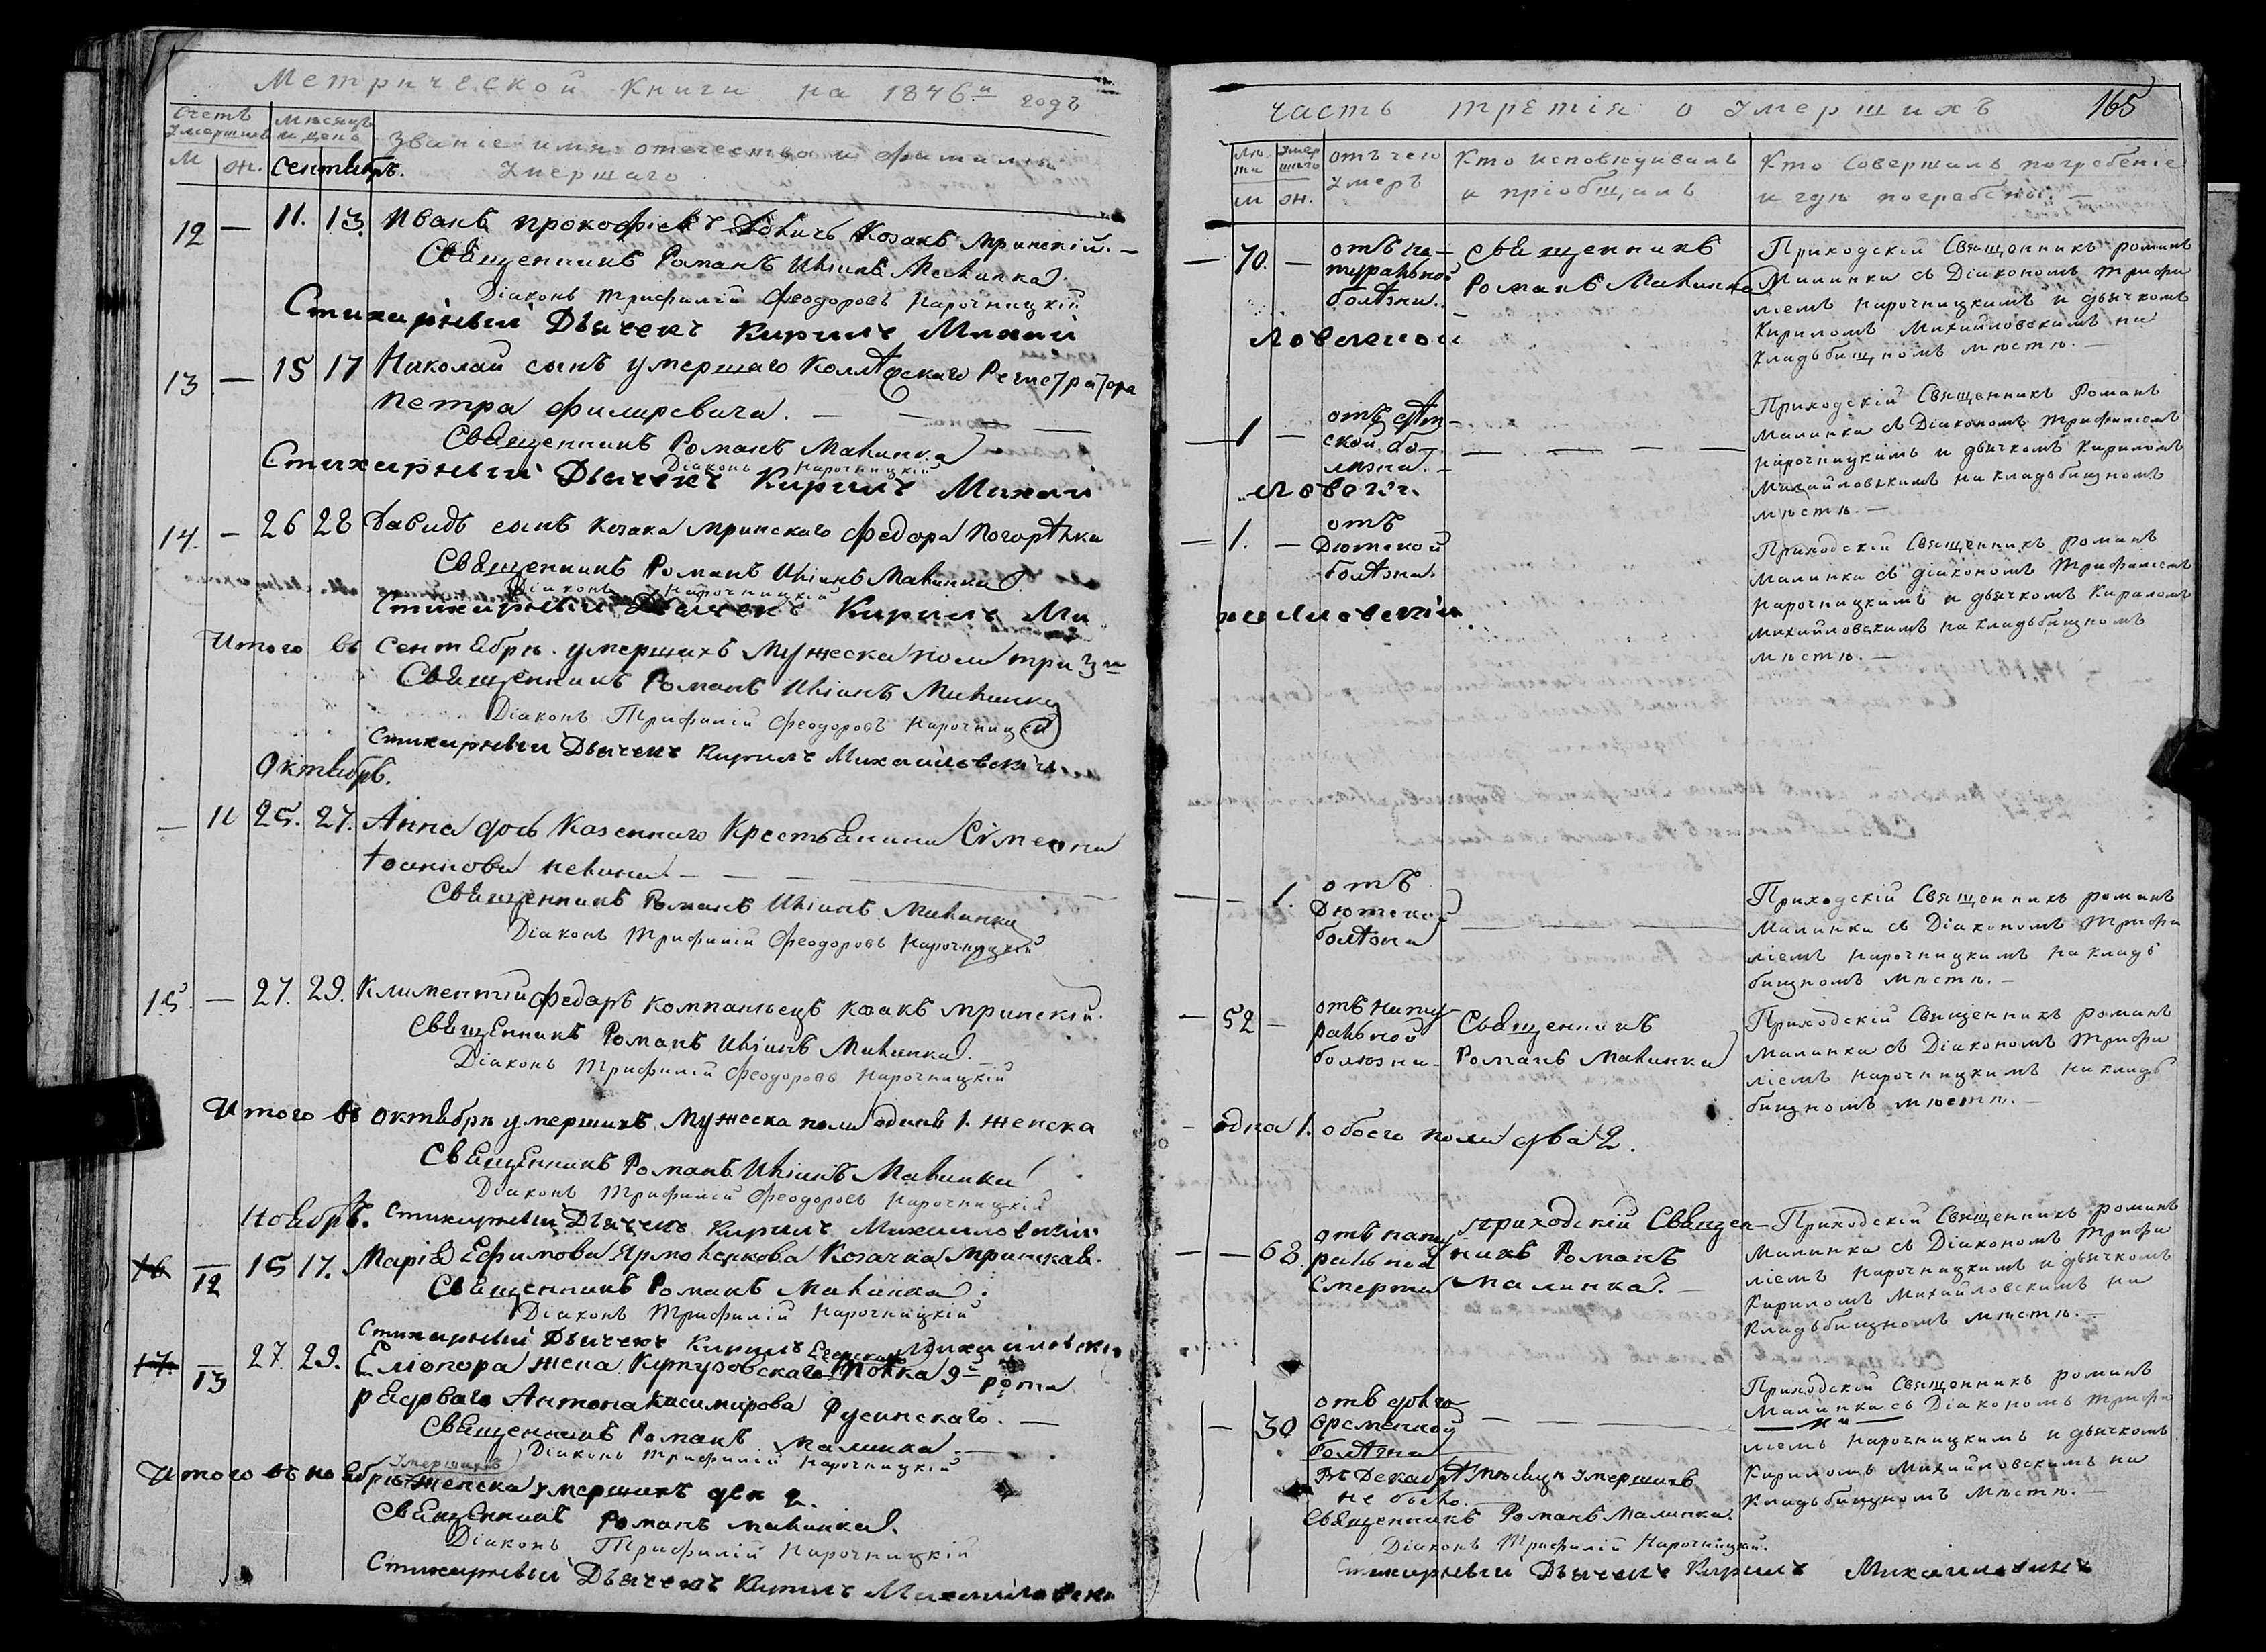 Метрической Книги на 1846й годъ
Счетъ умершихъ
Мѣсяцъ и день
Званіе имя отечество и фамилія
Умершаго
М
Ж.
Сентябрь.
12 — 11. 13. Иванъ Прокофіевъ Козакъ Мринскій. —
Священникъ Романъ Маlинка.
Діаконъ Трифилій Феодоровъ Нарочницкій
Стихарный Дьячекъ Кирилъ Михай
13 — 15 17 Николай сынъ умершаго Коллѣжскаго Регистратора
Петра Филиревича. — —
Священникъ Романъ Малинка
Діаконъ Нарочницкій
Стихарный Дьячекъ Кирилъ Михаи
14. — 26 28 Давидъ сынъ козака Мринскаго Федора Погорѣлки
Священникъ Романъ Малинка.
Діаконъ Нарочницкій
Стихарный Дьячекъ Кирилъ Ми
Итого въ Сентябрѣ. умершихъ Мужеска пола три 3
Священникъ Романъ Малинка
Діаконъ Трифилій Феодоровъ Нарочницкій
Стихарный Дьячекъ Кирилъ Михайловскій
Октябрь.
— 11 25. 27. Анна дочь Казеннаго Крестьянина Симеона
Іоаннова
Священникъ Романъ Малинка
Діаконъ Трифилій Феодоровъ Нарочницкій
15. — 27. 29. Климентій Федоръ Компанѣецъ козакъ Мринскій.
Священникъ Романъ Малинка.
Діаконъ Трифилій Феодоровъ Нарочницкій
Итого въ октябрѣ умершихъ Мужеска пола одинъ 1. женска
Священникъ Романъ Малинка
Діаконъ Трифилій Феодоровъ Нарочницкій
Ноябрь. Стихарный Дьячекъ Кирилъ Михайловскій
16 12 15 17. Марія Ефимова Ярмоленкова Козачка Мринская.
Священникъ Романъ Малинка.
Діаконъ Трифилій Нарочницкій
Стихарный Дьячекъ Кирилъ Михайловскі
17. 13 27. 29. Еліонора жена Кутузовскаго Егерскаго Полка 9й роты
рядоваго Антона Касимирова Русинскаго. —
Священникъ Романъ Малинка. —
Діаконъ Трифилій Нарочницкій
Итого въ ноябрѣ Умершихъ женска умершихъ двѣ 2.
Священникъ Романъ Малинка.
Діаконъ Трифилій Нарочницкій
Стихарный Дьячекъ Кирилъ Михайловскі
часть третія о умершихъ
165
Лѣта умершаго
М
Ж.
отъ чего умеръ
Кто исповѣдывалъ
и пріобщалъ
Кто Совершалъ погребеніе
и гдѣ погребены. —
— 70. —
отъ на-
туральной
болѣзни.
Священникъ
Романъ Малинка
Приходскій Священникъ романъ
Малинка съ Діакономъ Трифи
ліемъ Нарочницкимъ и дьячкомъ
Кириломъ Михайловскимъ на
кладьбищномъ мѣстѣ. —
— 1 —
отъ дѣт-
ской бо-
лѣзни. —
— — — —
Приходскій Священникъ Романъ
Малинка съ Діакономъ Трифиліемъ
Нарочницкимъ и дьячкомъ Кириломъ
Михайловскимъ на кладьбищномъ
мѣстѣ. —
— 1. —
отъ
Дѣтской
болѣзни
Приходскій Священникъ романъ
Малинка съ діакономъ Трифиліемъ
Нарочницкимъ и дьячкомъ Кириломъ
Михайловскимъ на кладьбищномъ
мѣстѣ. —
хайловскій
— — 1.
отъ
Дѣтской
болѣзни
— — —
Приходскій Священникъ романъ
Малинка съ Діакономъ Трифи
ліемъ Нарочницкимъ на кладь
бищномъ мѣстѣ. —
— 52 —
отъ нату
ральной
болѣзни
Священникъ
Романъ Малинка
Приходскій Священникъ романъ
Малинка съ Діакономъ Трифи
ліемъ Нарочницкимъ на кладь
бищномъ мѣстѣ. —
одна 1. обоего пола два 2.
— — 68.
отъ нату
ральной
Смерти
приходскій Священ—
никъ Романъ
Малинка. —
Приходскій Священникъ романъ
Малинка съ Діакономъ Трифи
ліемъ Нарочницкимъ и дьячкомъ
Кириломъ Михайловскимъ на
Кладьбищномъ мѣстѣ. —
— 30
отъ долго
временной
болѣзни
— — —
Приходскій Священникъ романъ
Малинка съ Діакономъ Трифи
ліемъ Нарочницкимъ и дьячкомъ
Кириломъ Михайловскимъ на
Кладьбищномъ мѣстѣ. —
Въ Декабрѣ мѣсяцѣ умершихъ
не было.
Священникъ Романъ Малинка.
Діаконъ Трифилій Нарочницкій.
Стихарный Дьячекъ Кирилъ Михайловскі